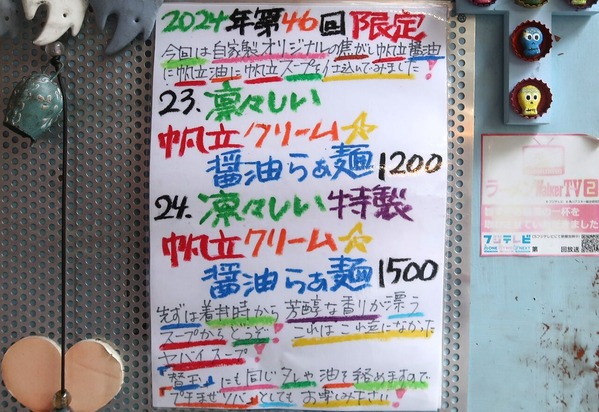 2024年第46回限定
今回は自家製オリジナルの焦がし帆立醤油
に帆立油に帆立スープを仕込んでみました!
23.凛々しい
帆立クリーム☆
醤油らぁ麺1200
24.凛々しい特製
帆立クリーム☆
醤油らぁ麺1500
先ずは着丼時から芳醇な香りが漂う
スープからどうぞ!これはこれ迄になかった
ヤバイスープ!
替玉にも同じタレや油を絡めますので
てもお楽しみ下さい!
Walker TV 2
フジテレビ
回放送